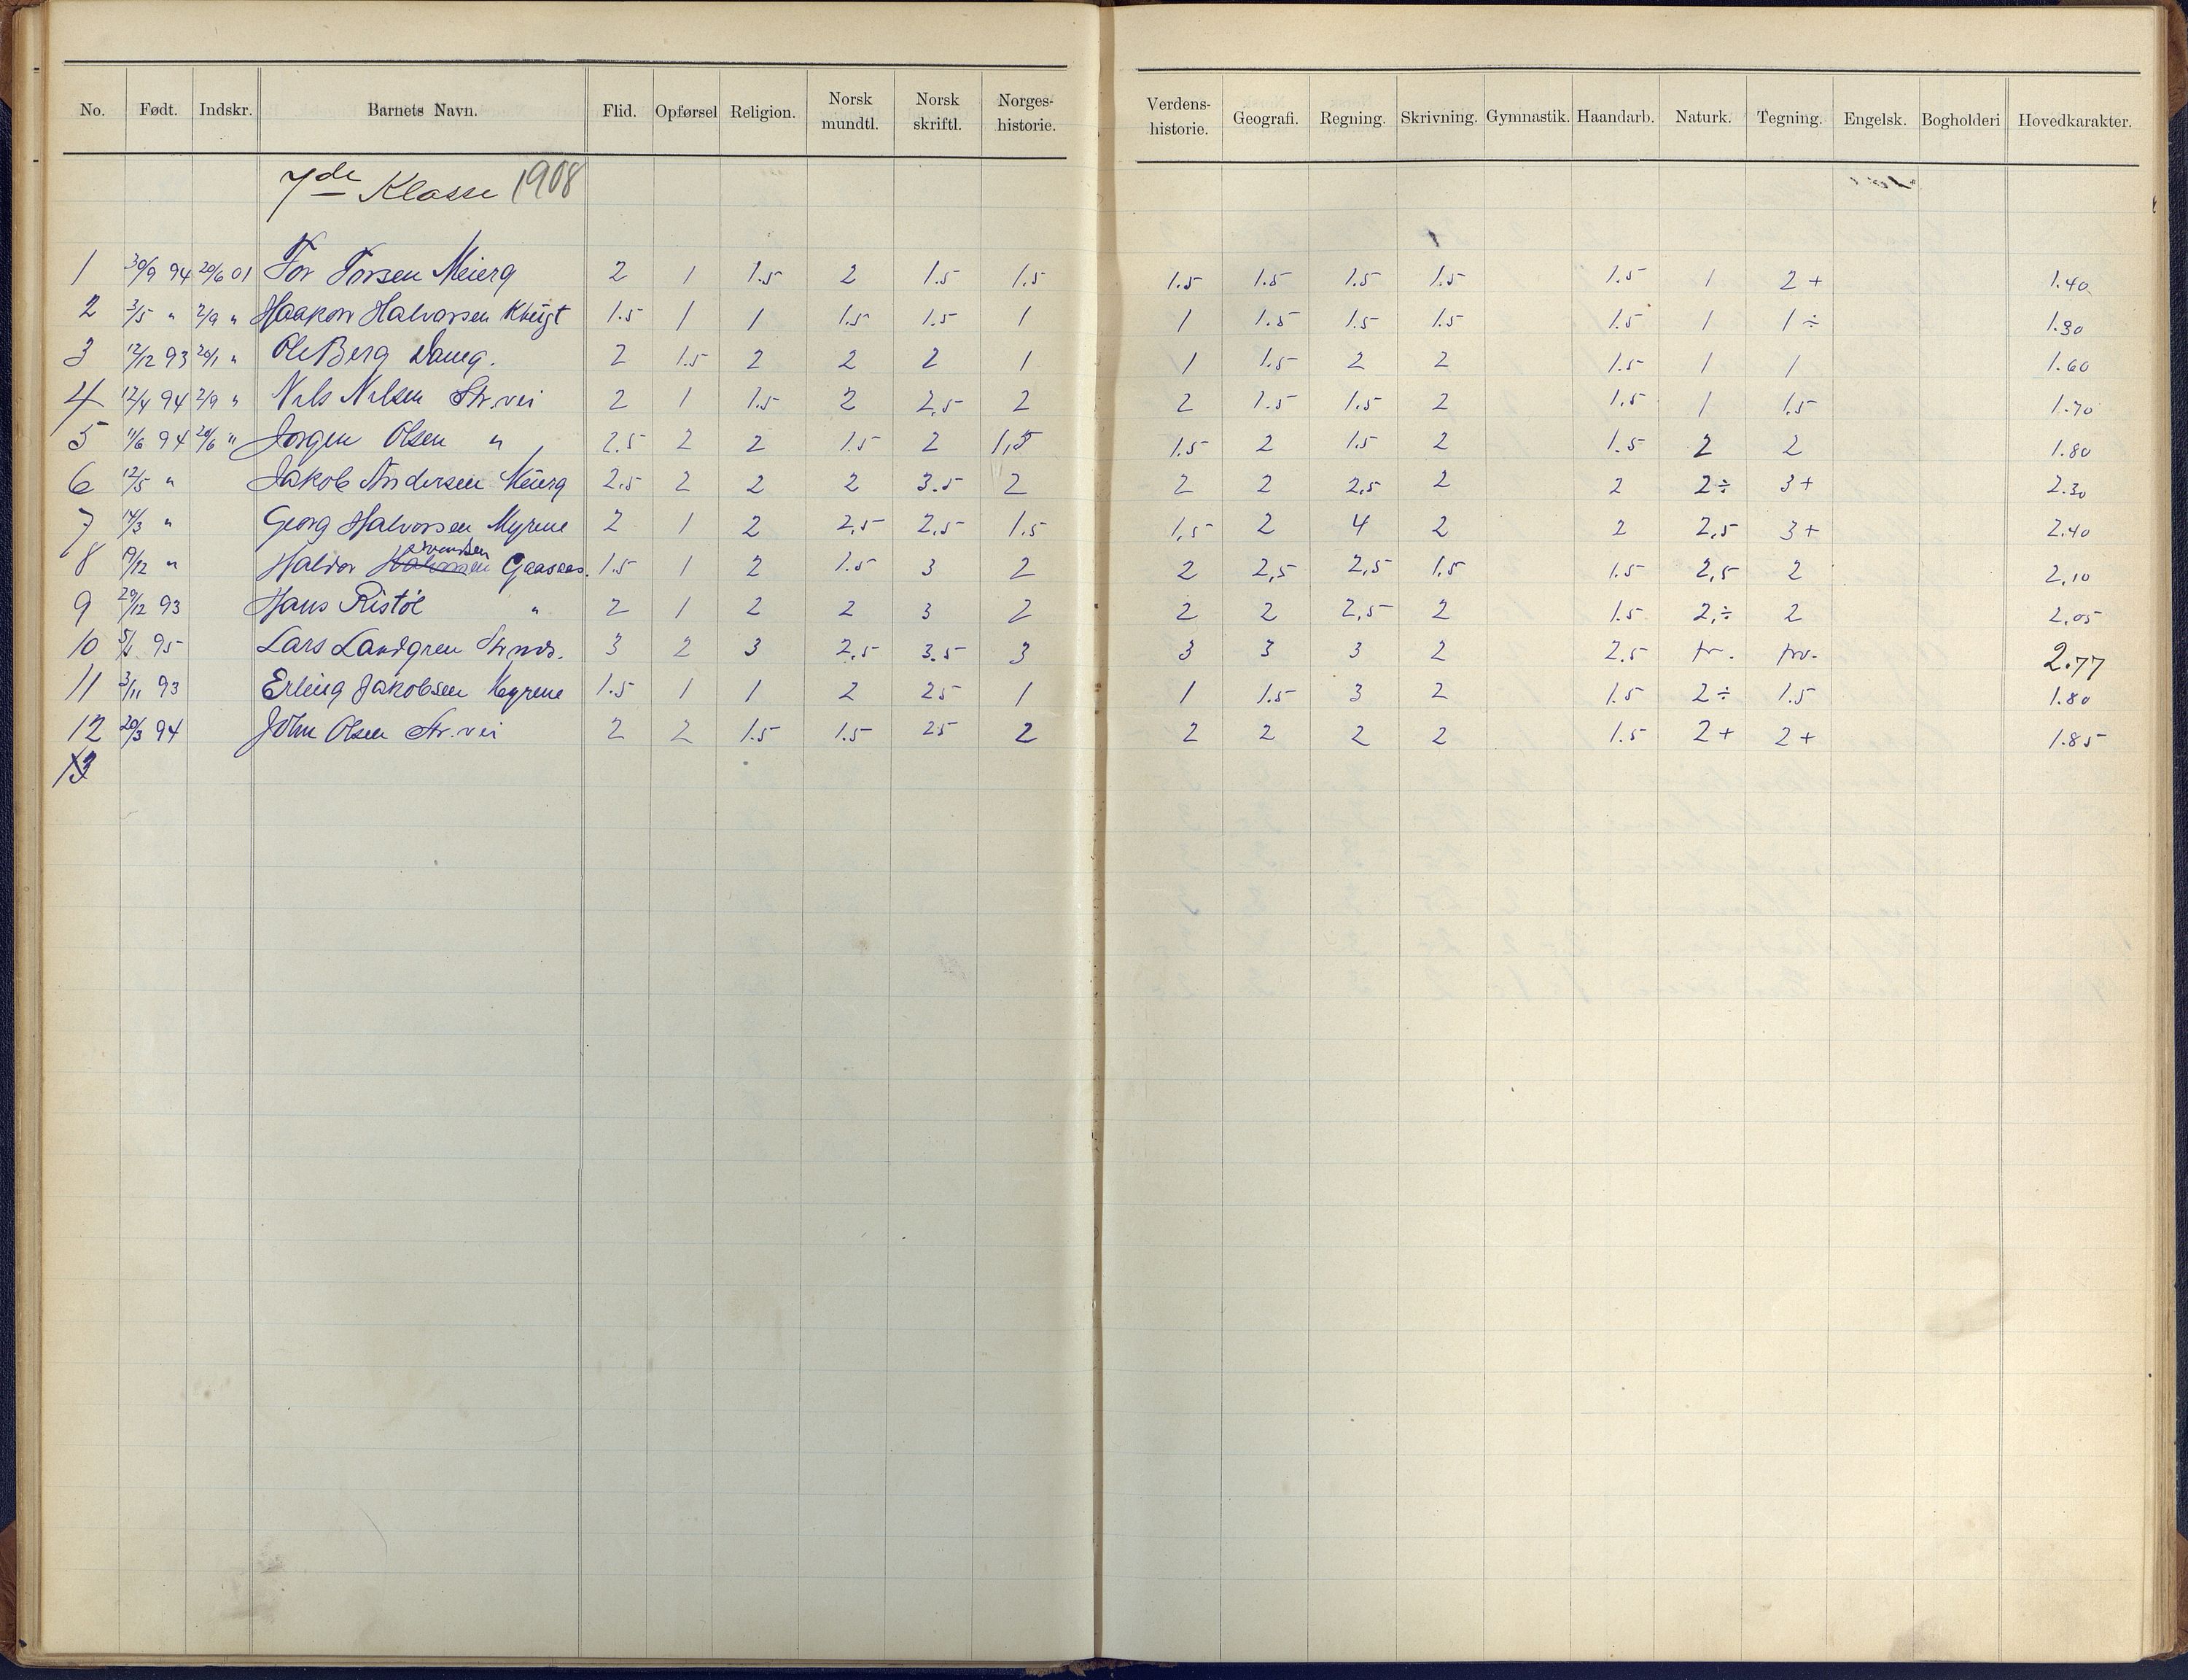 No. Født. Indskr. Barnets Navn. Flid. Opførsel Religion. Norsk mundtl. Norsk skriftl. Norges-historie. Verdens-historie. Geografi. Regning. Skrivning. Gymnastik. Haandarb. Naturk. Tegning. Engelsk. Bogholderi Hovedkarakter.
7de Klasse 1908
1 30/9 94 20/6 01 Tor Torsen Meierg 2 1 1.5 2 1.5 1.5 1.5 1.5 1.5 1.5 1.5 1 2+ 1.40
2 3/5 " 2/9 " Haakon Halvorsen 1.5 1 1 1.5 1.5 1 1 1.5 1.5 1.5 1.5 1 1÷ 1.30
3 12/12 93 20/1 " Ole Berg 2 1.5 2 2 2 1 1 1.5 2 2 1.5 1 1 1.60
4 12/4 94 2/9 " Nils Nilsen Str.vei 2 1 1.5 2 2,5 2 2 1.5 1.5 2 1.5 1 1.5 1.70
5 11/6 94 20/6 " Jørgen Olsen " 2.5 2 2 1.5 2 1,5 1.5 2 1.5 2 1.5 2 2 1.80
6 12/5 " Jakob Andersen Meierg 2.5 2 2 2 3.5 2 2 2 2,5 2 2 2÷ 3+ 2.30
7 14/3 " Georg Halvorsen Myrene 2 1 2 2,5 2,5 1.5 1,5 2 4 2 2 2,5 3+ 2.40
8 9/12 " Haldor Halvorsen Svendsen Gaasaas. 1.5 1 2 1.5 3 2 2 2,5 2,5 1.5 1.5 2,5 2 2,10
9 29/12 93 Hans Ristøl " 2 1 2 2 3 2 2 2 2,5 2 1.5 2,÷ 2 2,05
10 95 Lars Landgren 3 2 3 2,5 3.5 3 3 3 3 2 2.5 2.77
11 3/11 93 Erling Jakobsen Myrene 1.5 1 1 2 25 1 1 1.5 3 2 1.5 2÷ 1.5 1.80
12 20/3 94 John Olsen Str.vei 2 2 1.5 1.5 25 2 2 2 2 2 1.5 2+ 2+ 1.85
13